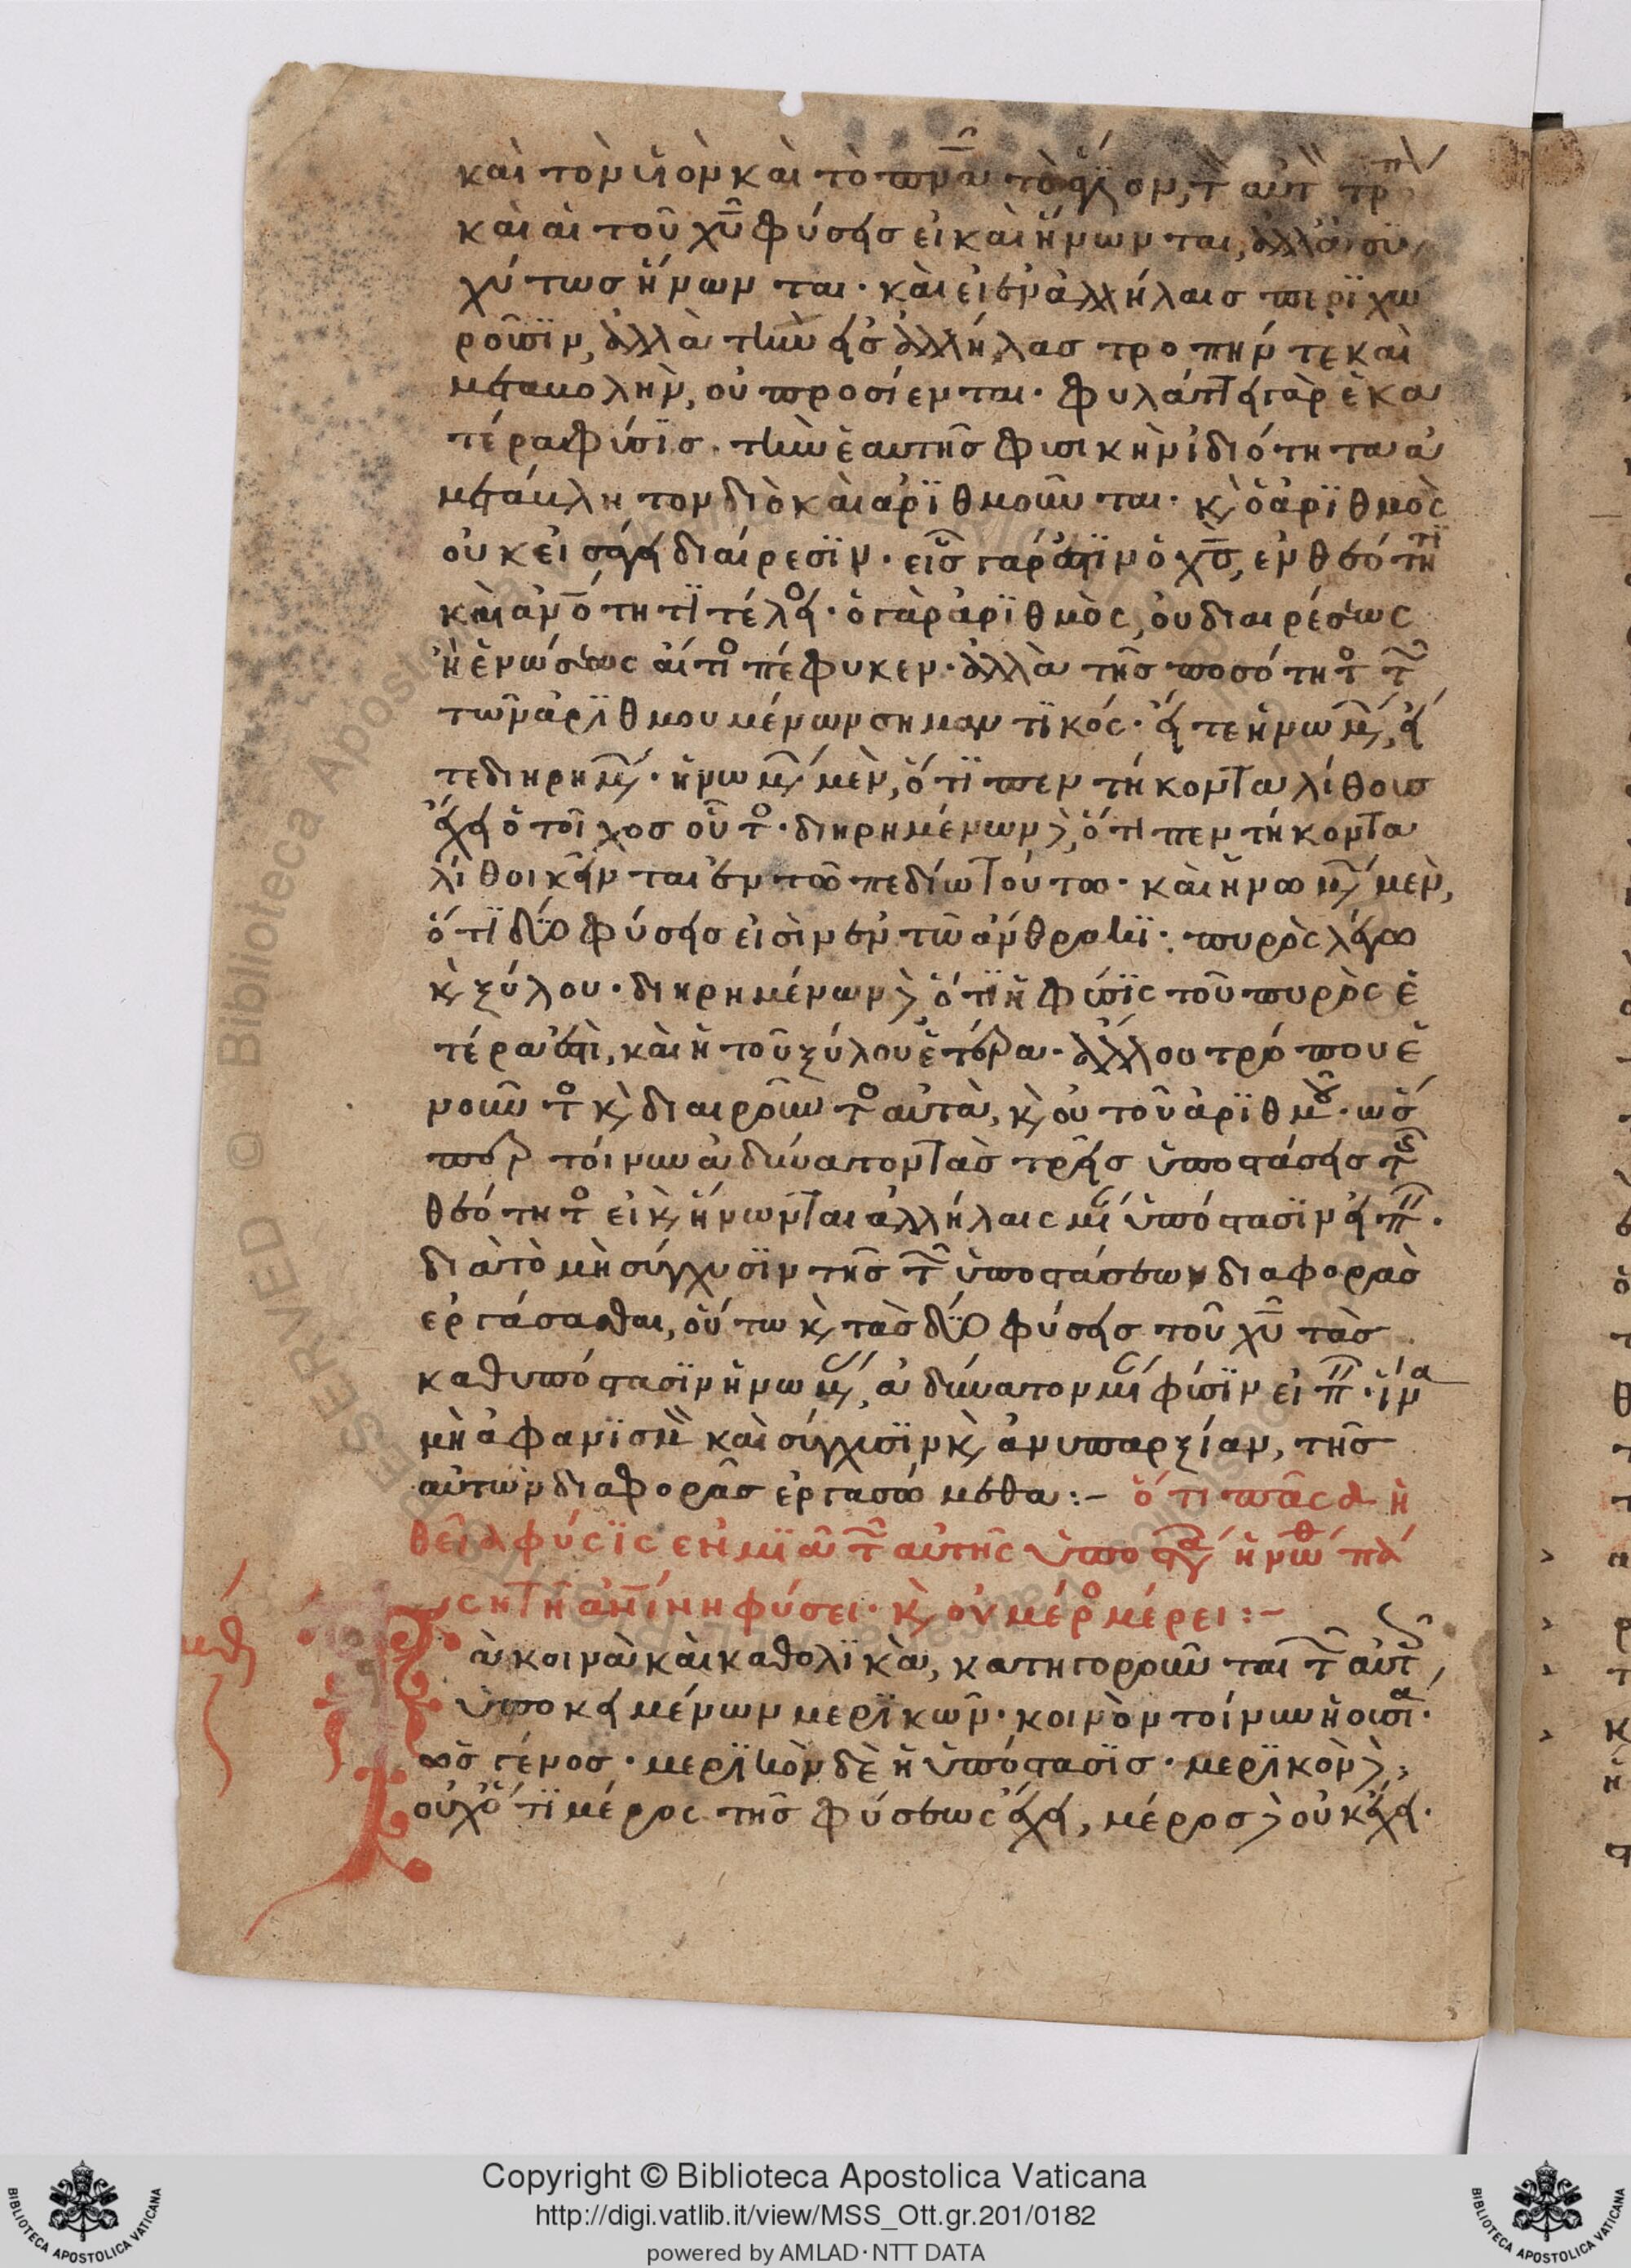 καὶ τὸν υἱὸν καὶ τὸ πν̅α τὸ ἅγϊον, τ αὐτ τρ
καὶ αἱ τοῦ χυ̅ φύσεις εἰ καὶ ἥνωνται, ἀλλ' ἀσυ
χύτως ἥνωνται· καὶ εἰ ἐν ἀλλήλαις περϊχω
ροῦσϊν, ἀλλὰ τὴν εἰς ἀλλήλας τροπήν τε καὶ
μεταβολὴν, οὐ προσίενται· φυλάττει γὰρ ἑκα
τέρα φύσϊς. τὴν ἑαυτῆς φυσικὴν ἰδιότητα ἀ
μετάβλητον διὸ καὶ ἀρϊθμοῦνται· κ ὁ ἀρϊθμὸς
οὐκ εἰσάγει διαίρεσϊν· εἷς γάρ ἐστϊν ὁ χς̅, ἐν θεότητϊ
καὶ ἀν̅ότητϊ τέλο· ὁ γὰρ ἀρϊθμὸς, οὐ διαιρέσεως
ἢ ἑνώσεως αἴτιο πέφυκεν· ἀλλὰ τῆς ποσότητο τ
τῶν ἀρϊθμουμένων σημαντϊκός· εἴτε ἡνωμ, εἴ
τε διηρημ· ἡνωμ μὲν, ὅτϊ πεντήκοντα λίθους
ἔχει ὁ τοῖχος οὗτο· διηρημένων δὲ, ὅτϊ πεντήκοντα
λίθοι κεῖνται ἐν τῶ πεδίω τούτω· καὶ ἡνωμ μὲν,
ὅτϊ δύο φύσεις εἰσὶν ἐν τῶ ἄνθρακϊ· πυρὸς λέγω
κ ξύλου· διηρημένων δὲ ὅτϊ ἡ φύσϊς τοῦ πυρὸς ἑ
τέρα ἐστὶ, καὶ ἡ τοῦ ξύλου ἑτέρα· ἄλλου τρόπου ἑ
νοῦντο κ διαιροῦντο αὐτὰ, κ οὐ τοῦ ἀρϊθμοῦ· ὥσ
περ τοίνυν ἀδύνατον τὰς τρεῖς ὑποστάσεις τῆς
θεότητο εἰ κ ἥνωνται ἀλλήλαις μί ὑπόστασϊν εἰπ.
διὰ τὸ μὴ σύγχυσϊν τῆς τ ὑποστάσεων διαφορὰς
ἐργάσασθαι, οὕτω κ τὰς δύο φύσεις τοῦ χυ̅ τὰς
καθυπόστασϊν ἡνωμ, ἀδύνατον μί φύσϊν εἰπ· ἵνα
μὴ ἀφανϊσμ καὶ σύγχυσϊν κ ἀνυπαρξίαν, τῆς
αὐτῶν διαφορᾶς ἐργασώμεθα:– ὅτι πᾶσα ἡ
θεία φύσϊς ἐν μϊᾶ τ αὐτῆς ὑποστ ἡνώθ πά
ση τῆ ἀν̅ίνη φύσει· κ οὐ μέρο μέρει:–
ὰ κοινὰ καὶ καθολϊκὰ, κατηγοροῦνται τ αὐτ
ὑποκειμένων μερϊκῶν· κοινὸν τοίνυν ἡ οὐσία·
ὡς γένος· μερϊκὸν δὲ ἡ ὑπόστασϊς· μερϊκὸν δὲ,
οὐχ ὅτϊ μέρος τῆς φύσεως ἔχει, μέρος δὲ οὐκ ἔχει.
Copyright © Biblioteca Apostolica Vaticana
http://digi.vatlib.it/view/MSS_Ott.gr.201/0182
powered by AMLAD·NTT DATA
BIBLIOTECA APOSTOLICA VATICANA
BIBLIOTECA APOSTOLICA VATICANA